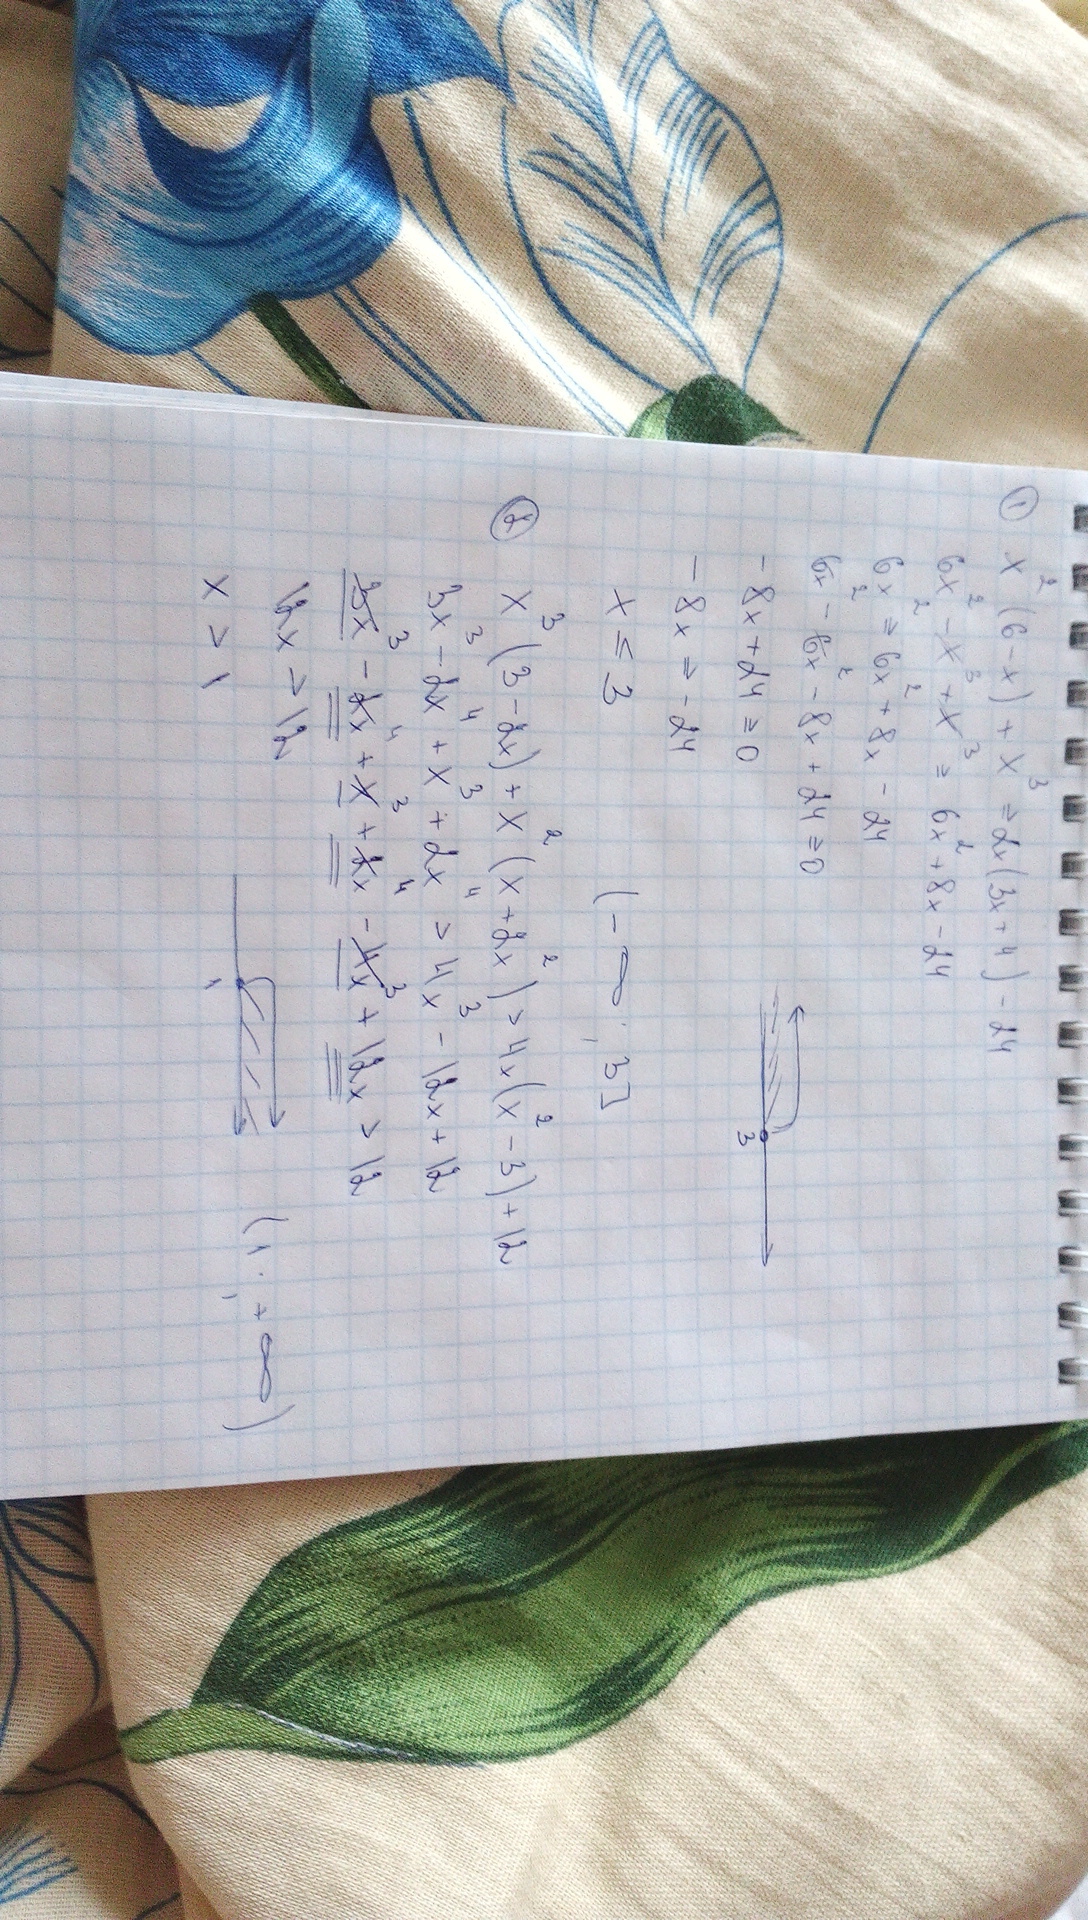 ① x² (6-x) + x³ ≥ 2x(3x+4) - 24
6x² - x³ + x³ ≥ 6x² + 8x - 24
6x² ≥ 6x² + 8x - 24
6x² - 6x² - 8x + 24 ≥ 0
-8x + 24 ≥ 0
3
-8x ≥ -24
x ≤ 3 (-∞; 3]
② x³ (3-2x) + x² (x+2x²) > 4x(x²-3)+12
3x³ - 2x⁴ + x³ + 2x⁴ > 4x³ - 12x + 12
3x³ - 2x⁴ + x³ + 2x⁴ - 4x³ + 12x > 12
12x > 12
x > 1 1 (1; +∞)